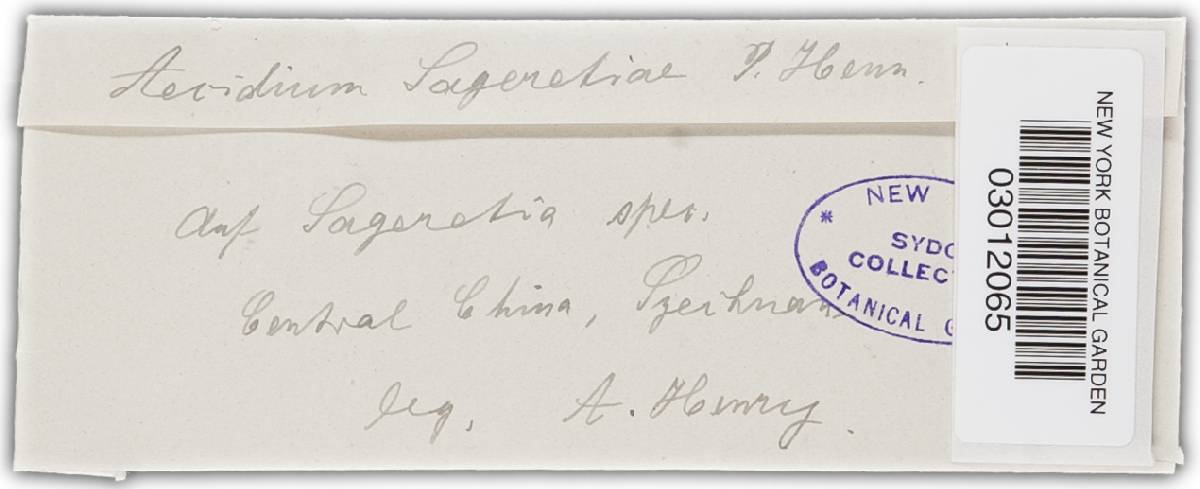 Aecidium Sageretiae P. Henn.
auf Sageretia spec.
Central China, Szechuan
leg. A. Henry.
NEW
SYDO
COLLEC
BOTANICAL G
NEW YORK BOTANICAL GARDEN
03012065